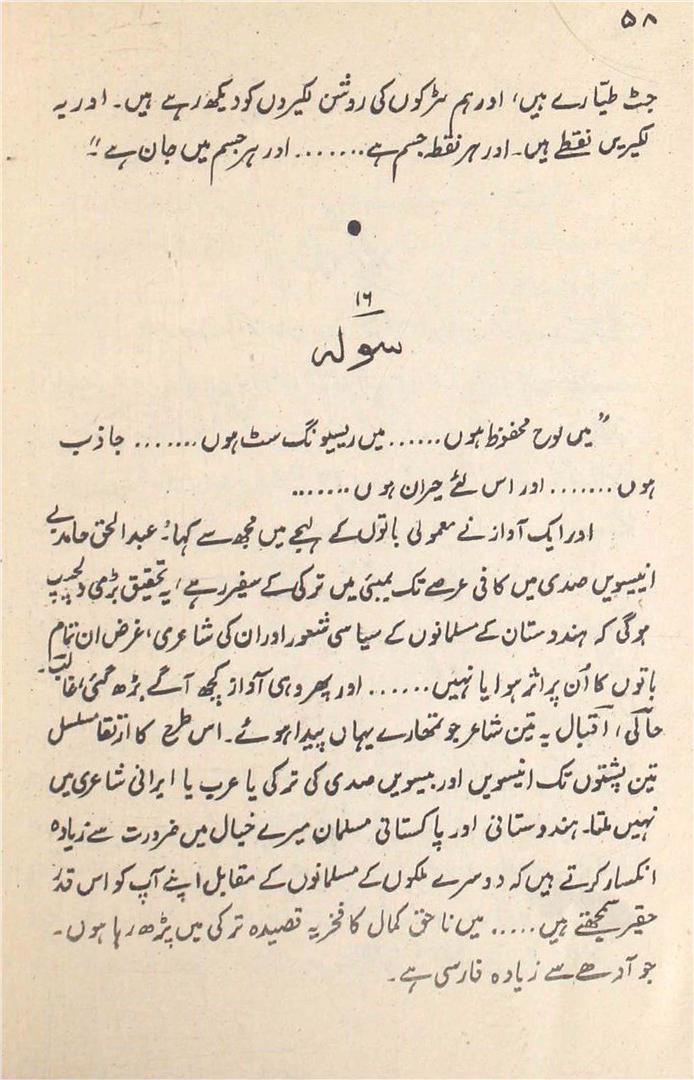 ۵۸
جٹ طیّارے ہیں، اور ہم سڑکوں کی روشن لکیروں کو دیکھ رہے ہیں۔ اور یہ
لکیریں نقطے ہیں۔ اور ہر نقطہ جسم ہے....... اور ہر جسم میں جان ہے!"
●
۱۶
سولہ
"میں لوح محفوظ ہوں...... میں ریسیونگ سٹ ہوں....... جاذب
ہوں....... اور اس لئے حیران ہوں.......
اور ایک آواز نے معمولی باتوں کے لہجے میں مجھ سے کہا: عبدالحق حامد بے
انیسویں صدی میں کافی عرصے تک بمبئی میں ترکی کے سفیر رہے، یہ تحقیق بڑی دلچسپ
ہوگی کہ ہندوستان کے مسلمانوں کے سیاسی شعور اور ان کی شاعری، غرض ان تمام
باتوں کا اُن پر اثر ہوا یا نہیں...... اور پھر وہی آواز کچھ آگے بڑھ گئی، غالب۔
حالی، اقبال یہ تین شاعر جو تمھارے یہاں پیدا ہوئے۔ اس طرح کا ارتقا مسلسل
تین پشتوں تک انیسویں اور بیسویں صدی کی ترکی یا عرب یا ایرانی شاعری میں
نہیں ملتا۔ ہندوستانی اور پاکستانی مسلمان میرے خیال میں ضرورت سے زیادہ
انکسار کرتے ہیں کہ دوسرے ملکوں کے مسلمانوں کے مقابل اپنے آپ کو اس قدر
حقیر سمجھتے ہیں..... میں ناحق کمال کا فخریہ قصیدہ ترکی میں پڑھ رہا ہوں۔
جو آدھے سے زیادہ فارسی ہے۔